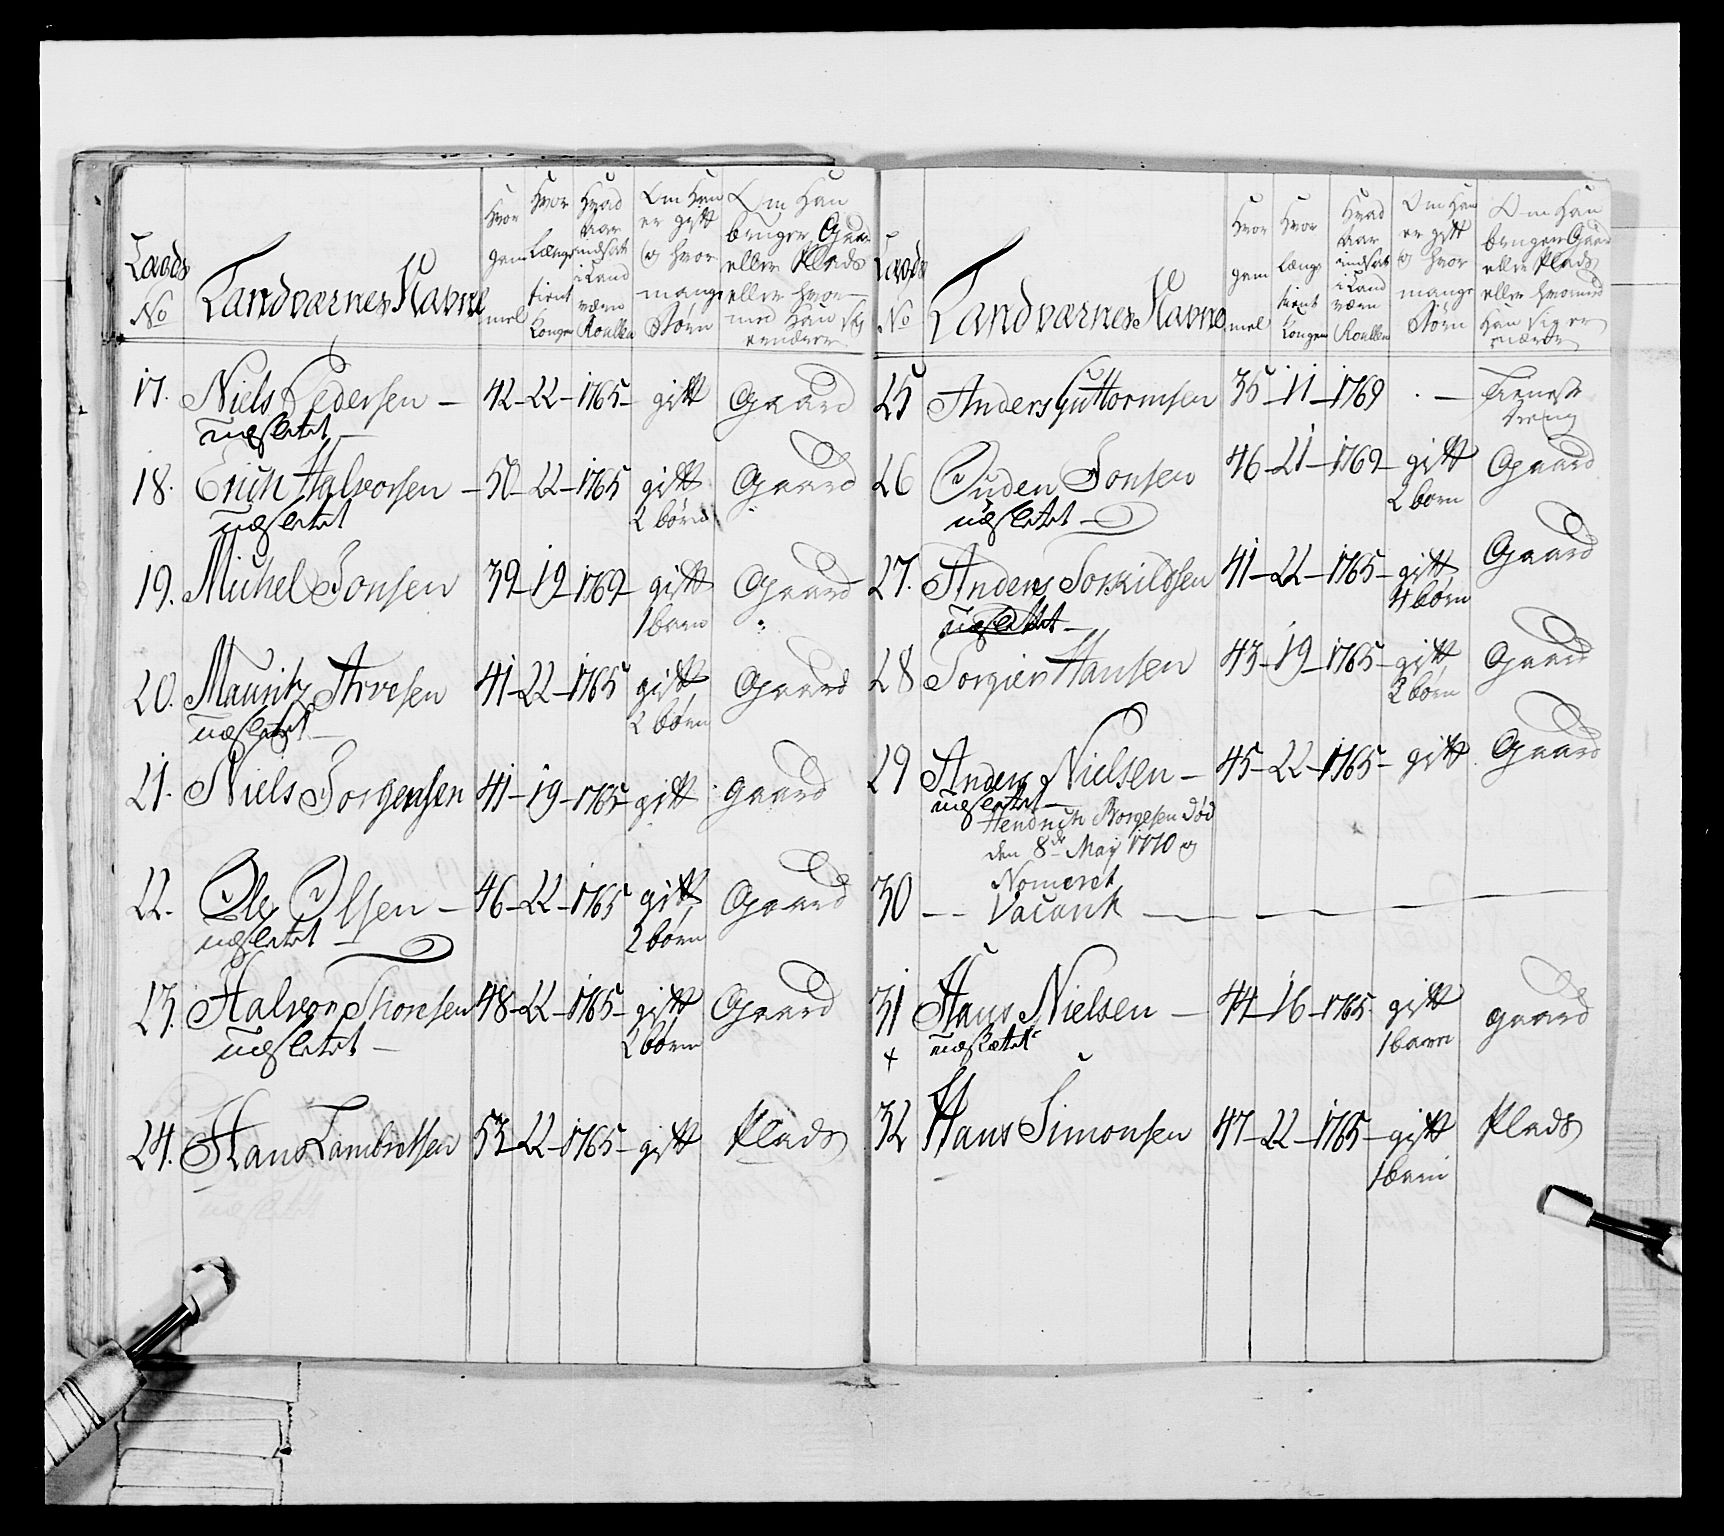 Laods
No
Landværnes Navne
Hvor
gam
mel
Hvor
Længe
tient
Kongen
Hvad
Aar
indsat
i Land
værn
Roullen
Om Han
er gift
og hvor
mange
Børn
Om Han
bruger Gaard
eller Plads
eller hvor
med Han sig
ernærer
17. Niels Pedersen – 42 – 22 – 1765 – gift Gaard
udsletet –
18. Erich Halvorsen – 50 – 22 – 1765 gift Gaard
udsletet 2 børn
19. Michel Jonsen 39 – 19 – 1769 – gift Gaard
1 barn
20. Mauritz Arvesen 41 – 22 – 1765 gift Gaard
udsletet – 2 børn
21. Niels Jørgensen 41 – 19 – 1765 – gift gaard
22. Ole Olsen – 46 – 22 – 1765 gift Gaard
udsletet – 2 børn
23. Halvor Thoresen 48 – 22 – 1765 – gift Gaard
udsletet – 2 børn
24. Hans Lambretsen 53 – 22 – 1765 – gift Plads
udsletet
Laods
No
Landværnes Navne
Hvor
gam
mel
Hvor
Længe
tient
Kongen
Hvad
Aar
indsat
i Land
værn
Roullen
Om Han
er gift
og hvor
mange
Børn
Om Han
bruger Gaard
eller Plads
eller hvormed
Han sig er
nærer
25 Anders Guttormsen 35 – 11 – 1769 . – Tieneste
dreng
26 Ouden Jonsen 46 – 21 – 1769 – gift Gaard
udsletet – 2 børn
27. Anders Torkildsen 41 – 22 – 1765 – gift Gaard
udslettet – 4 børn
28 Jørgien Hansen 43 – 19 – 1765 – gift Gaard
2 børn
29 Anders Nielsen – 45 – 22 – 1765 – gift Gaard
udsletet –
Hendrich Borgesen død
den 8de May 1770 og
Nomeret
30 – – Vacank –
31 Hans Nielsen – 44 – 16 – 1765 gift gaard
+ udslettet 1 barn
32 Hans Simonsen 47 – 22 – 1765 – gift Plads
1 barn